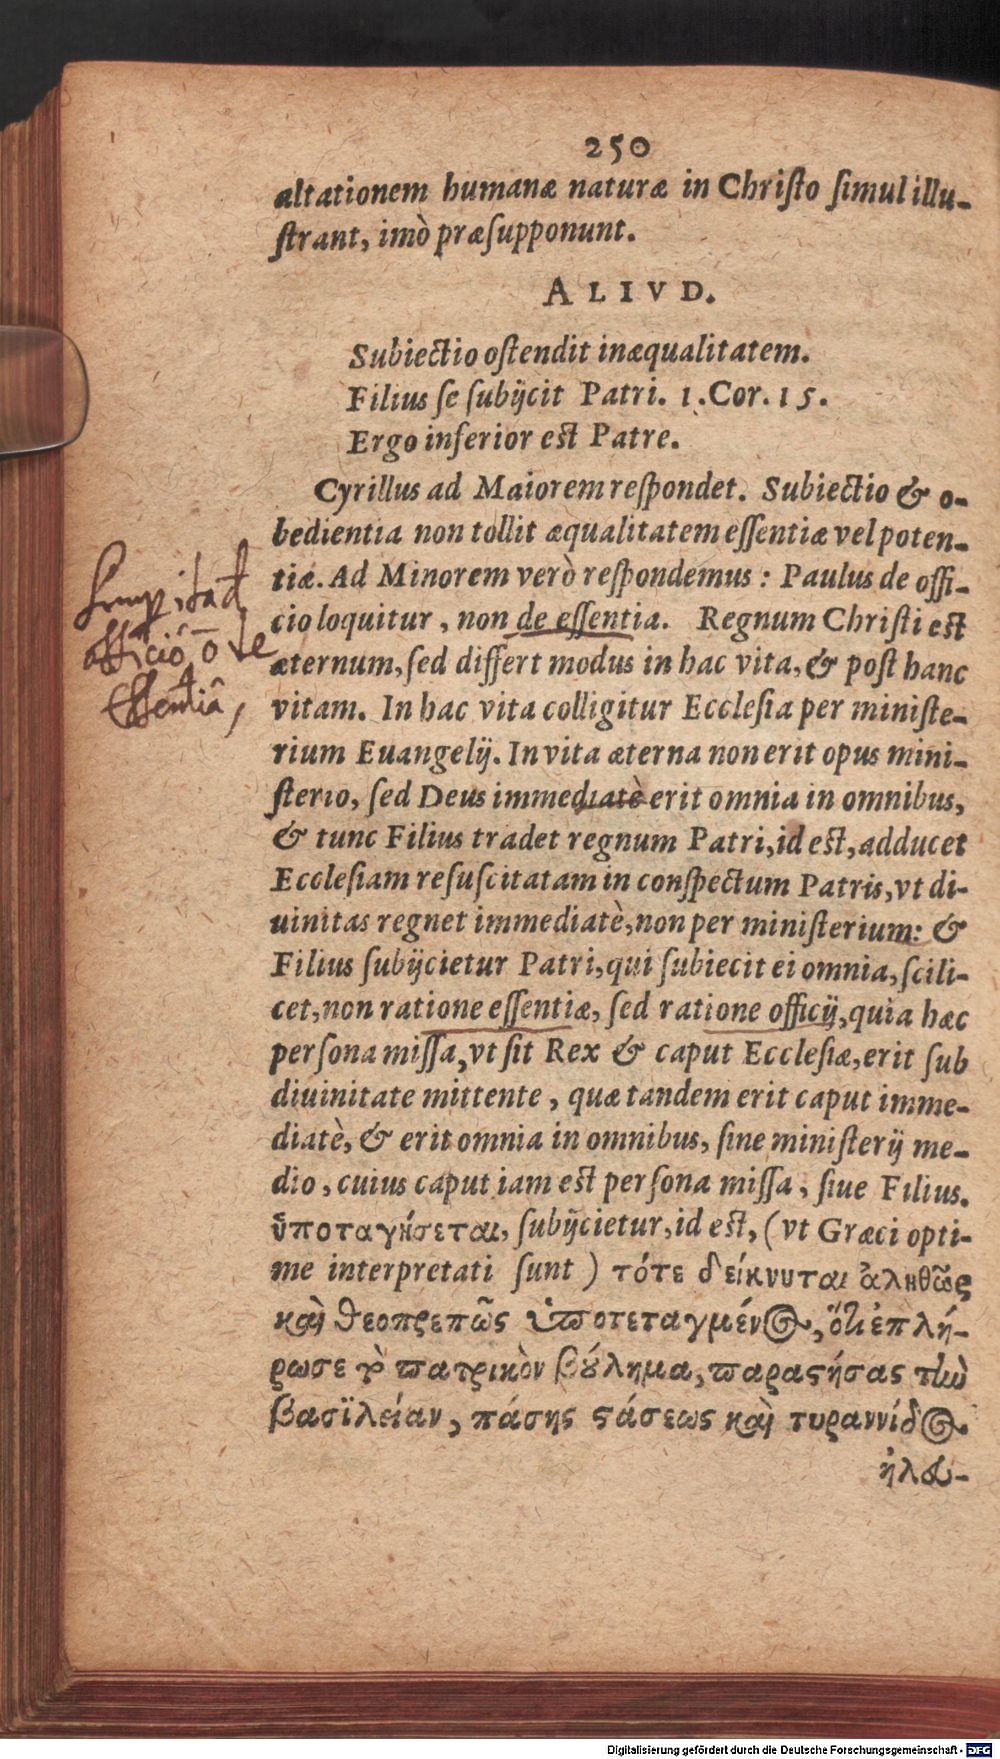 250
altationem humanæ naturæ in Christo simul illu-
ſtrant, imò præſupponunt.
ALIVD.
Subiectio oſtendit inæqualitatem.
Filius ſe ſubijcit Patri. 1. Cor. 15.
Ergo inferior est Patre.
Cyrillus ad Maiorem reſpondet. Subiectio & o-
bedientia non tollit æqualitatem eſſentiæ vel poten-
tiæ. Ad Minorem verò reſpondemus : Paulus de offi-
cio loquitur, non de eſſentia. Regnum Chriſti est
æternum, ſed differt modus in hac vita, & poſt hanc
vitam. In hac vita colligitur Eccleſia per miniſte-
rium Euangelij. In vita æterna non erit opus mini-
ſterio, ſed Deus immediatè erit omnia in omnibus,
& tunc Filius tradet regnum Patri, id est, adducet
Eccleſiam reſuſcitatam in conſpectum Patris, vt di-
uinitas regnet immediatè, non per miniſterium: &
Filius ſubijcietur Patri, qui ſubiecit ei omnia, ſcili-
cet, non ratione eſſentiæ, ſed ratione officij, quia hæc
perſona miſſa, vt ſit Rex & caput Eccleſiæ, erit ſub
diuinitate mittente, quæ tandem erit caput imme-
diatè, & erit omnia in omnibus, ſine miniſterij me-
dio, cuius caput iam est perſona miſſa, ſiue Filius.
ὑποταγήσεται, ſubijcietur, id est, (vt Græci opti-
me interpretati ſunt) τότε δείκνυται ἀληθῶς
καὶ θεοπρεπῶς ὑποτεταγμένος, ὅτι ἐπλή-
ρωσε τὸ πατρικὸν βύλημα, παραστήσας τὴν
βασιλείαν, πάσης στάσεως καὶ τυραννίδος
officio non de
Essentia,